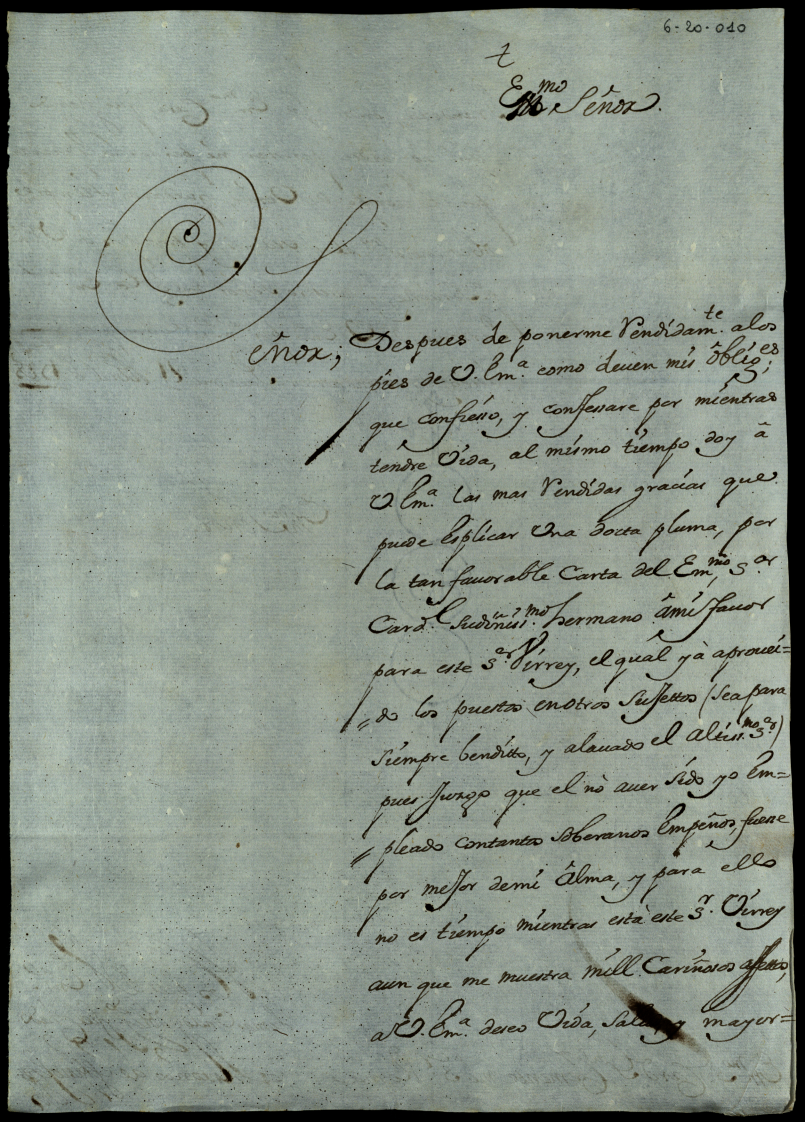 6-20-010
Em.mo Señor.
Señor; Despues de ponerme Rendidam.te a los
pies de V. Em.ª como deven mis ôblig.es;
que confiesso, y confessare por mientras
tendre Vida, al mismo tiempo doy â
V. Em.ª las mas Rendidas gracias que
puede Esplicar Una docta pluma, por
la tan favorable Carta del Em.mo S.or
Card.l Sudiñissi.mo hermano âmi favor
para este S.or Virrey, el quál yà aprovei=
=do los puestos enotros Sujettos (sea para
siempre benditto, y alavado el altiss.mo S.or)
pues Juzgo que el nò aver sido yo Em=
=pleado contantos soberanos Empeños, fuesse
por mejor demi Âlma, y para êllo
no es tiempo mientras està este S.r Virrey
aun que me muestra mill Cariñosos affettos,
a V. Em.ª deseo Vida, Salud, y mayor=